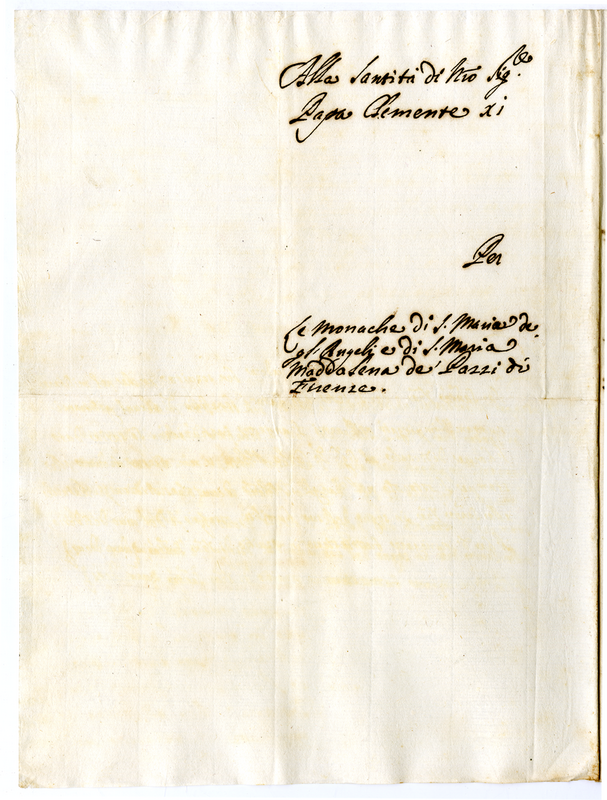 Alla Santità di Nro Sig.re
Papa Clemente xi
Per
Le Monache di S. Maria de
gl'Angeli e di S. Maria
Maddalena de' Pazzi di
Firenze.